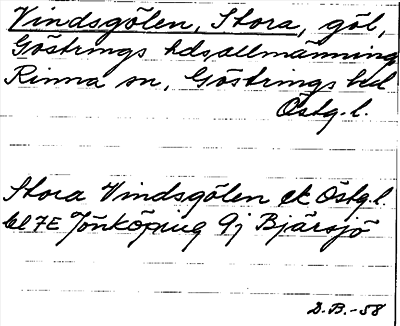 Vindsgölen, Stora, göl,
Göstrings hds allmänning
Rinna sn, Göstrings hd
Östg. l.
Stora Vindsgölen ek Östg. l.
bl 7E Jönköping 9j Bjärsjö
D.B.-58